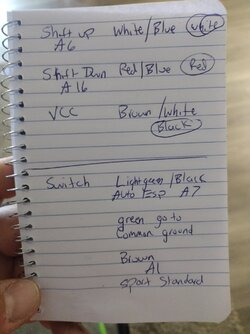 Shift up White/Blue White
A6
Shift Down Red/Blue Red
A16
VCC Brown/White
Black
Switch Lightgreen/Black
Auto Esp A7
green go to
common ground
Brown
A1
Sport Standard